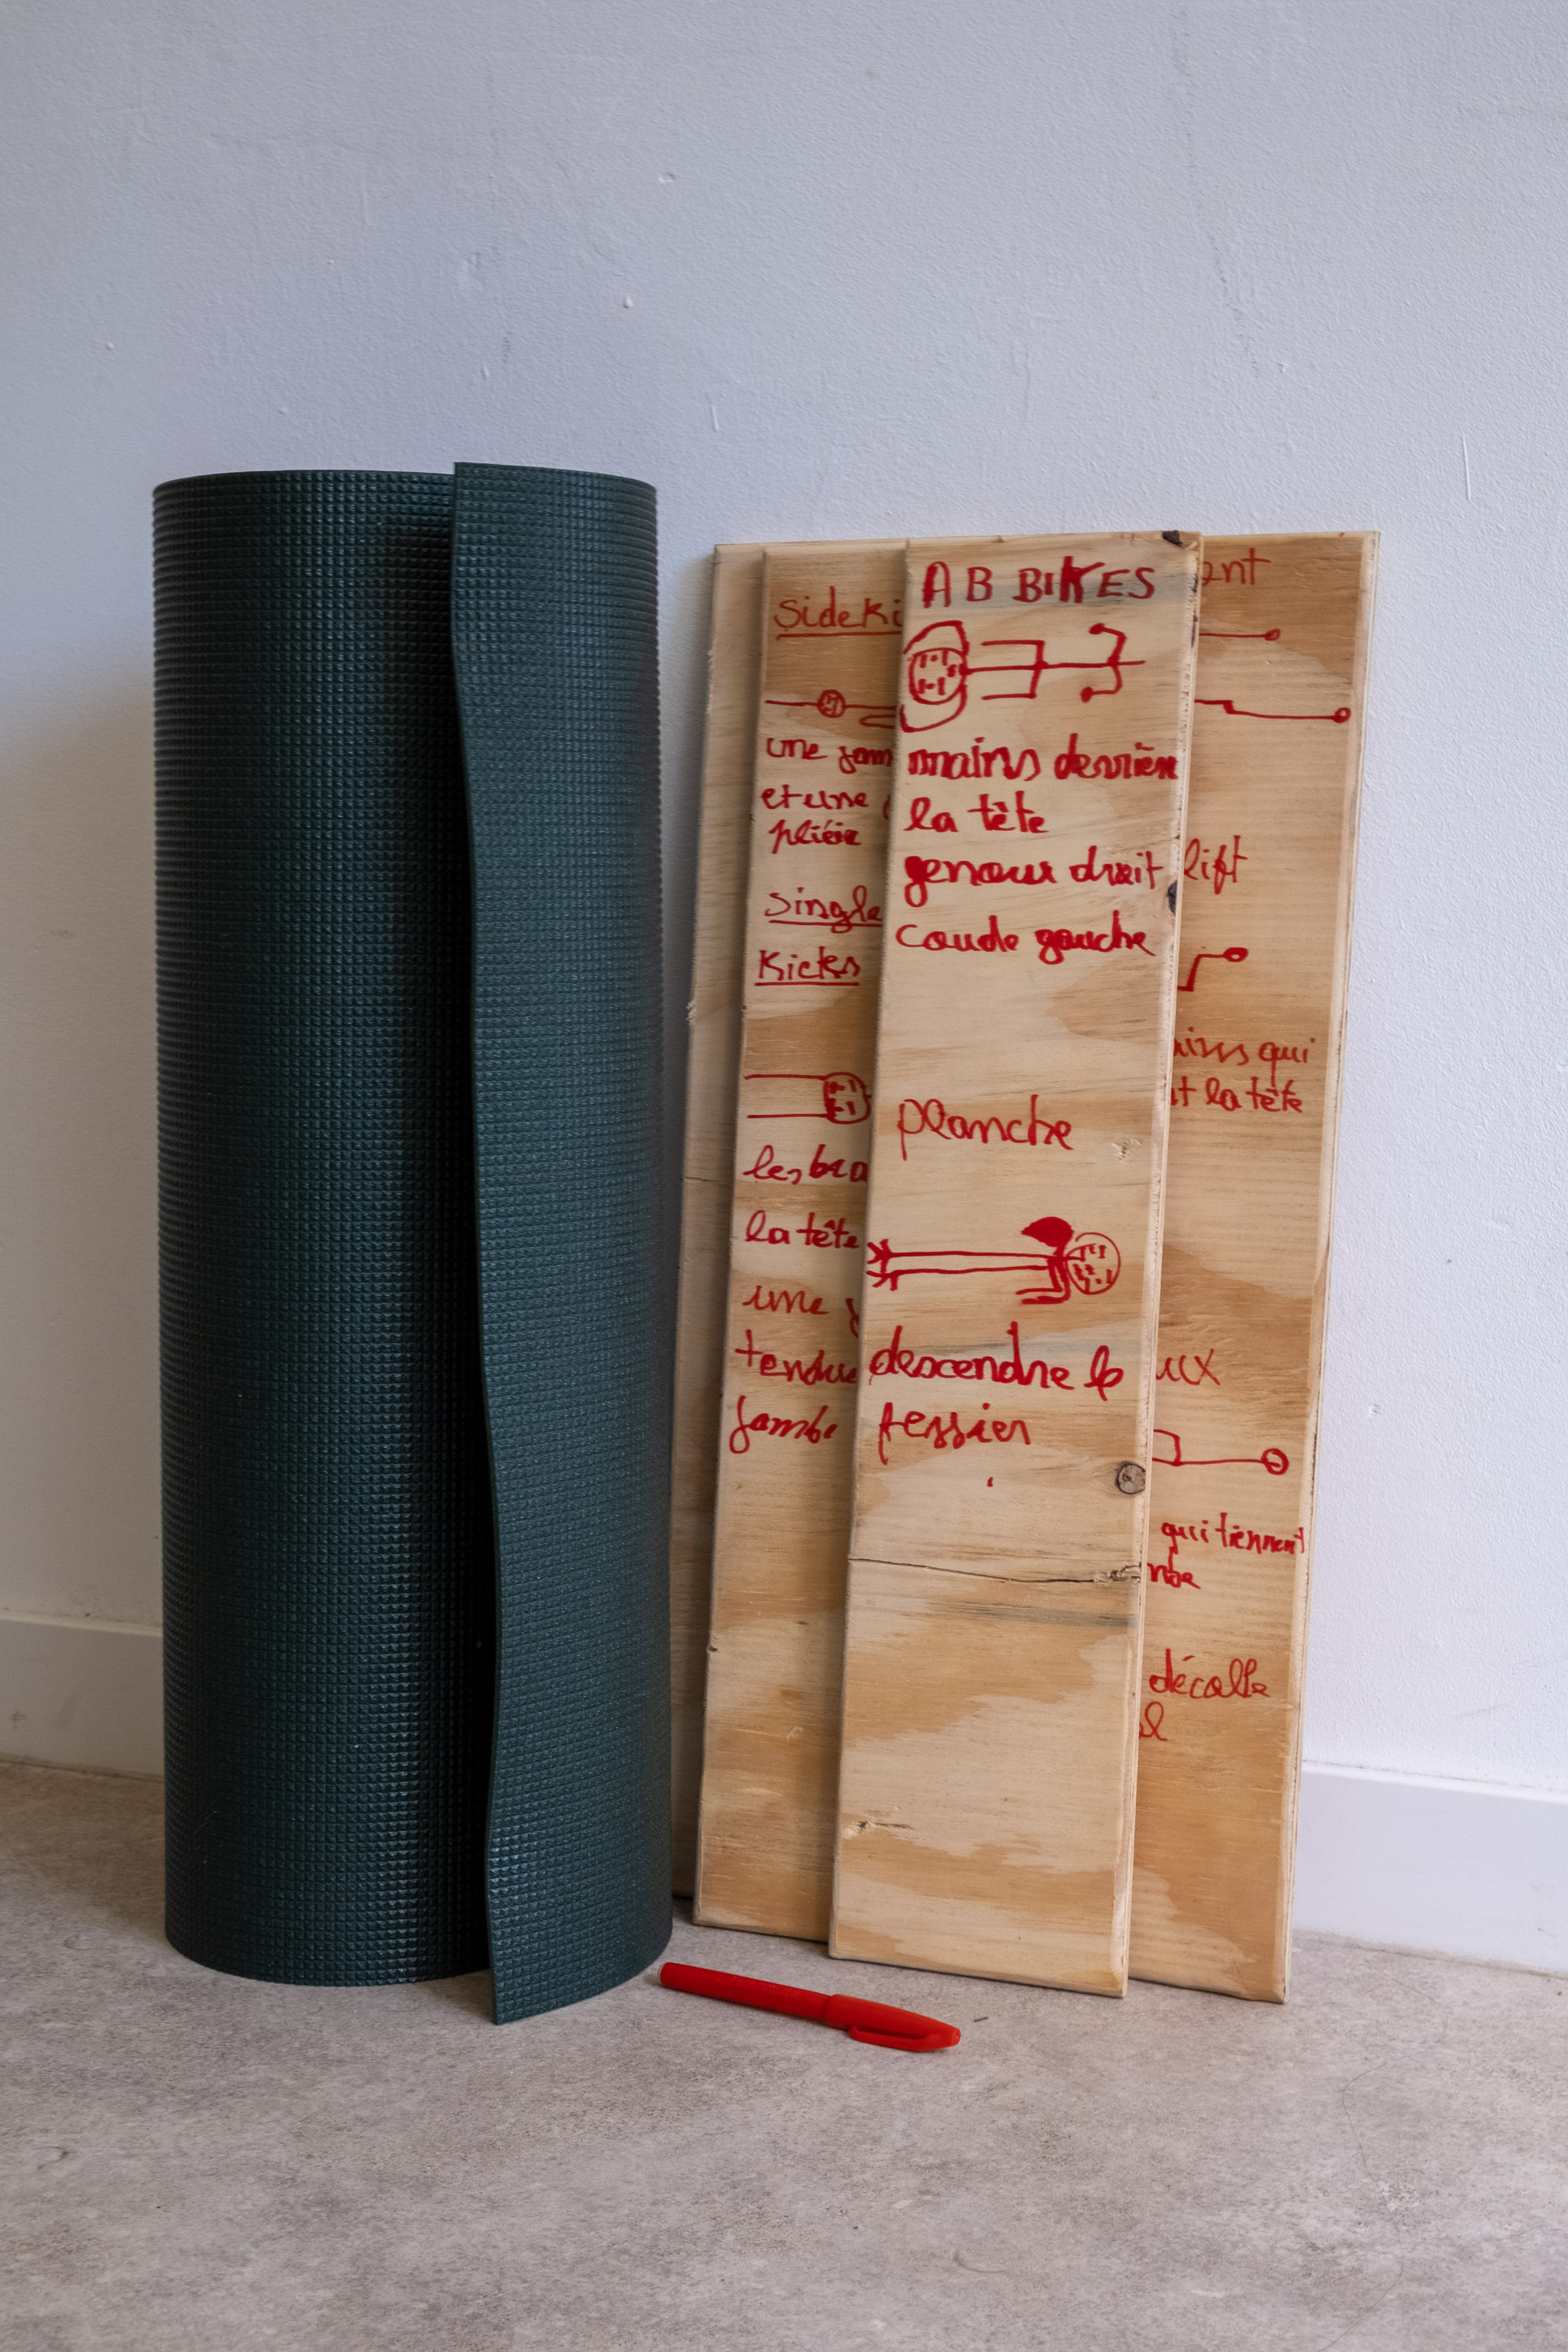 Side Ki
une jam
et une
pliée
Single
Kicks
les bra
la tête
une j
tendue
jambe
AB BIKES
mains derrière
la tête
genoux droit
coude gauche
planche
descendre le
fessier
ent
lift
ains qui
nt la tête
ux
qui tiennent
mbe
décolle
ol